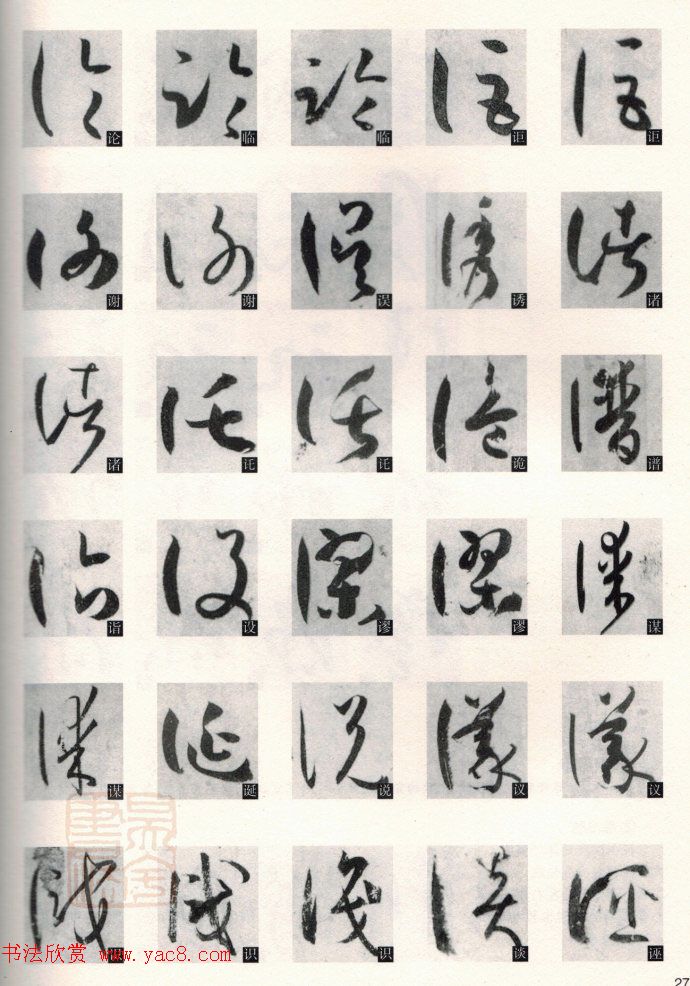 论 临 临 讵 讵
谢 谢 误 诱 诸
诸 讬 讬 诡 谱
诣 设 谬 谬 谋
谋 诞 说 议 议
识 识 谈 诬
书法欣赏 www.yac8.com
27